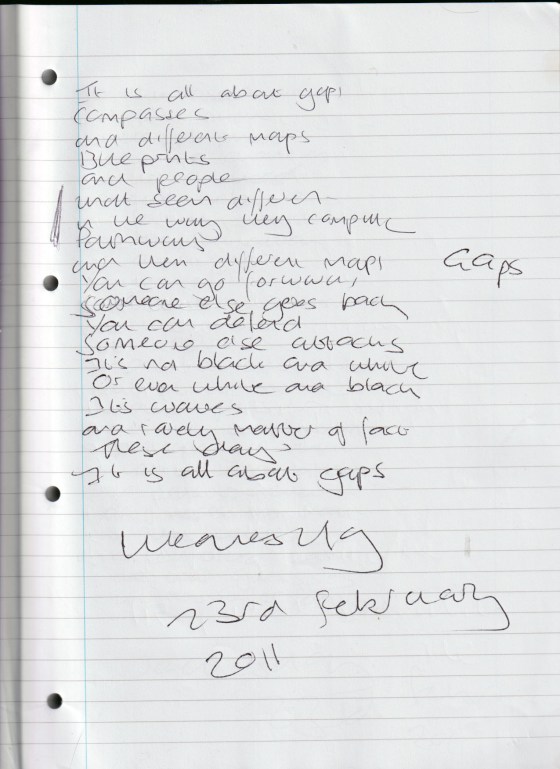 It is all about gaps
Compasses
and different maps
Blueprints
and people
that seem different
in the way they compute
Pathways
and then different maps
Gaps
You can go forward,
Someone else goes back
You can defend
Someone else attacks
It's not black and white
Or even white and black
It's waves
and rarely matter of fact
these days
It is all about gaps
Wednesday
23rd February
2011